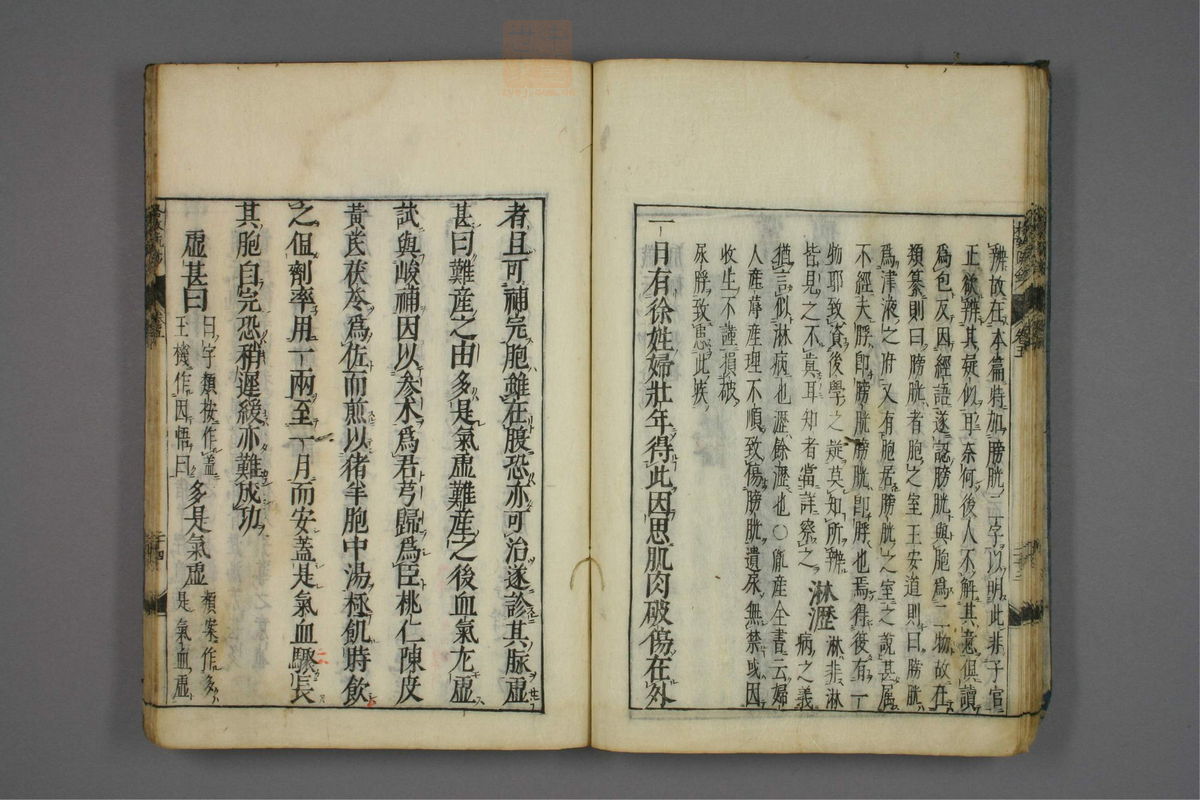 辨故在本篇特加膀胱二字以明此非子宮
正欲辨其疑似耳奈何後人不解其意俱讀
爲包反因經語遂認膀胱與胞爲二物故在
類纂則曰膀胱者胞之室王安道則曰膀胱
爲津液之府又有胞居膀胱之室之說甚屬
不經夫脬即膀胱膀胱即脬也焉得復有一
物耶致資後學之疑莫知所辨 淋瀝 淋非淋
皆見之不眞耳知者當詳察之 病之義
猶言似淋病也瀝餘瀝也〇胤產全書云婦
人產蓐產理不順致傷膀胱遺尿無禁或因
收生不謹損破
尿脬致患此疾
一日有徐姓婦壯年得此因思肌肉破傷在外
者且可補完胞雖在腹恐亦可治遂診其脉虛
甚曰難產之由多是氣虛難產之後血氣尤虛
試與峻補因以參朮爲君芎歸爲臣桃仁陳皮
黃芪茯苓爲佐而煎以猪羊胞中湯極飢時飲
之但劑率用一兩至一月而安蓋是氣血驟長
其胞自完恐稍遲緩亦難成功
虛甚曰 曰字類按作蓋 多是氣虛 類案作多
王機作因悟曰 是氣血虛